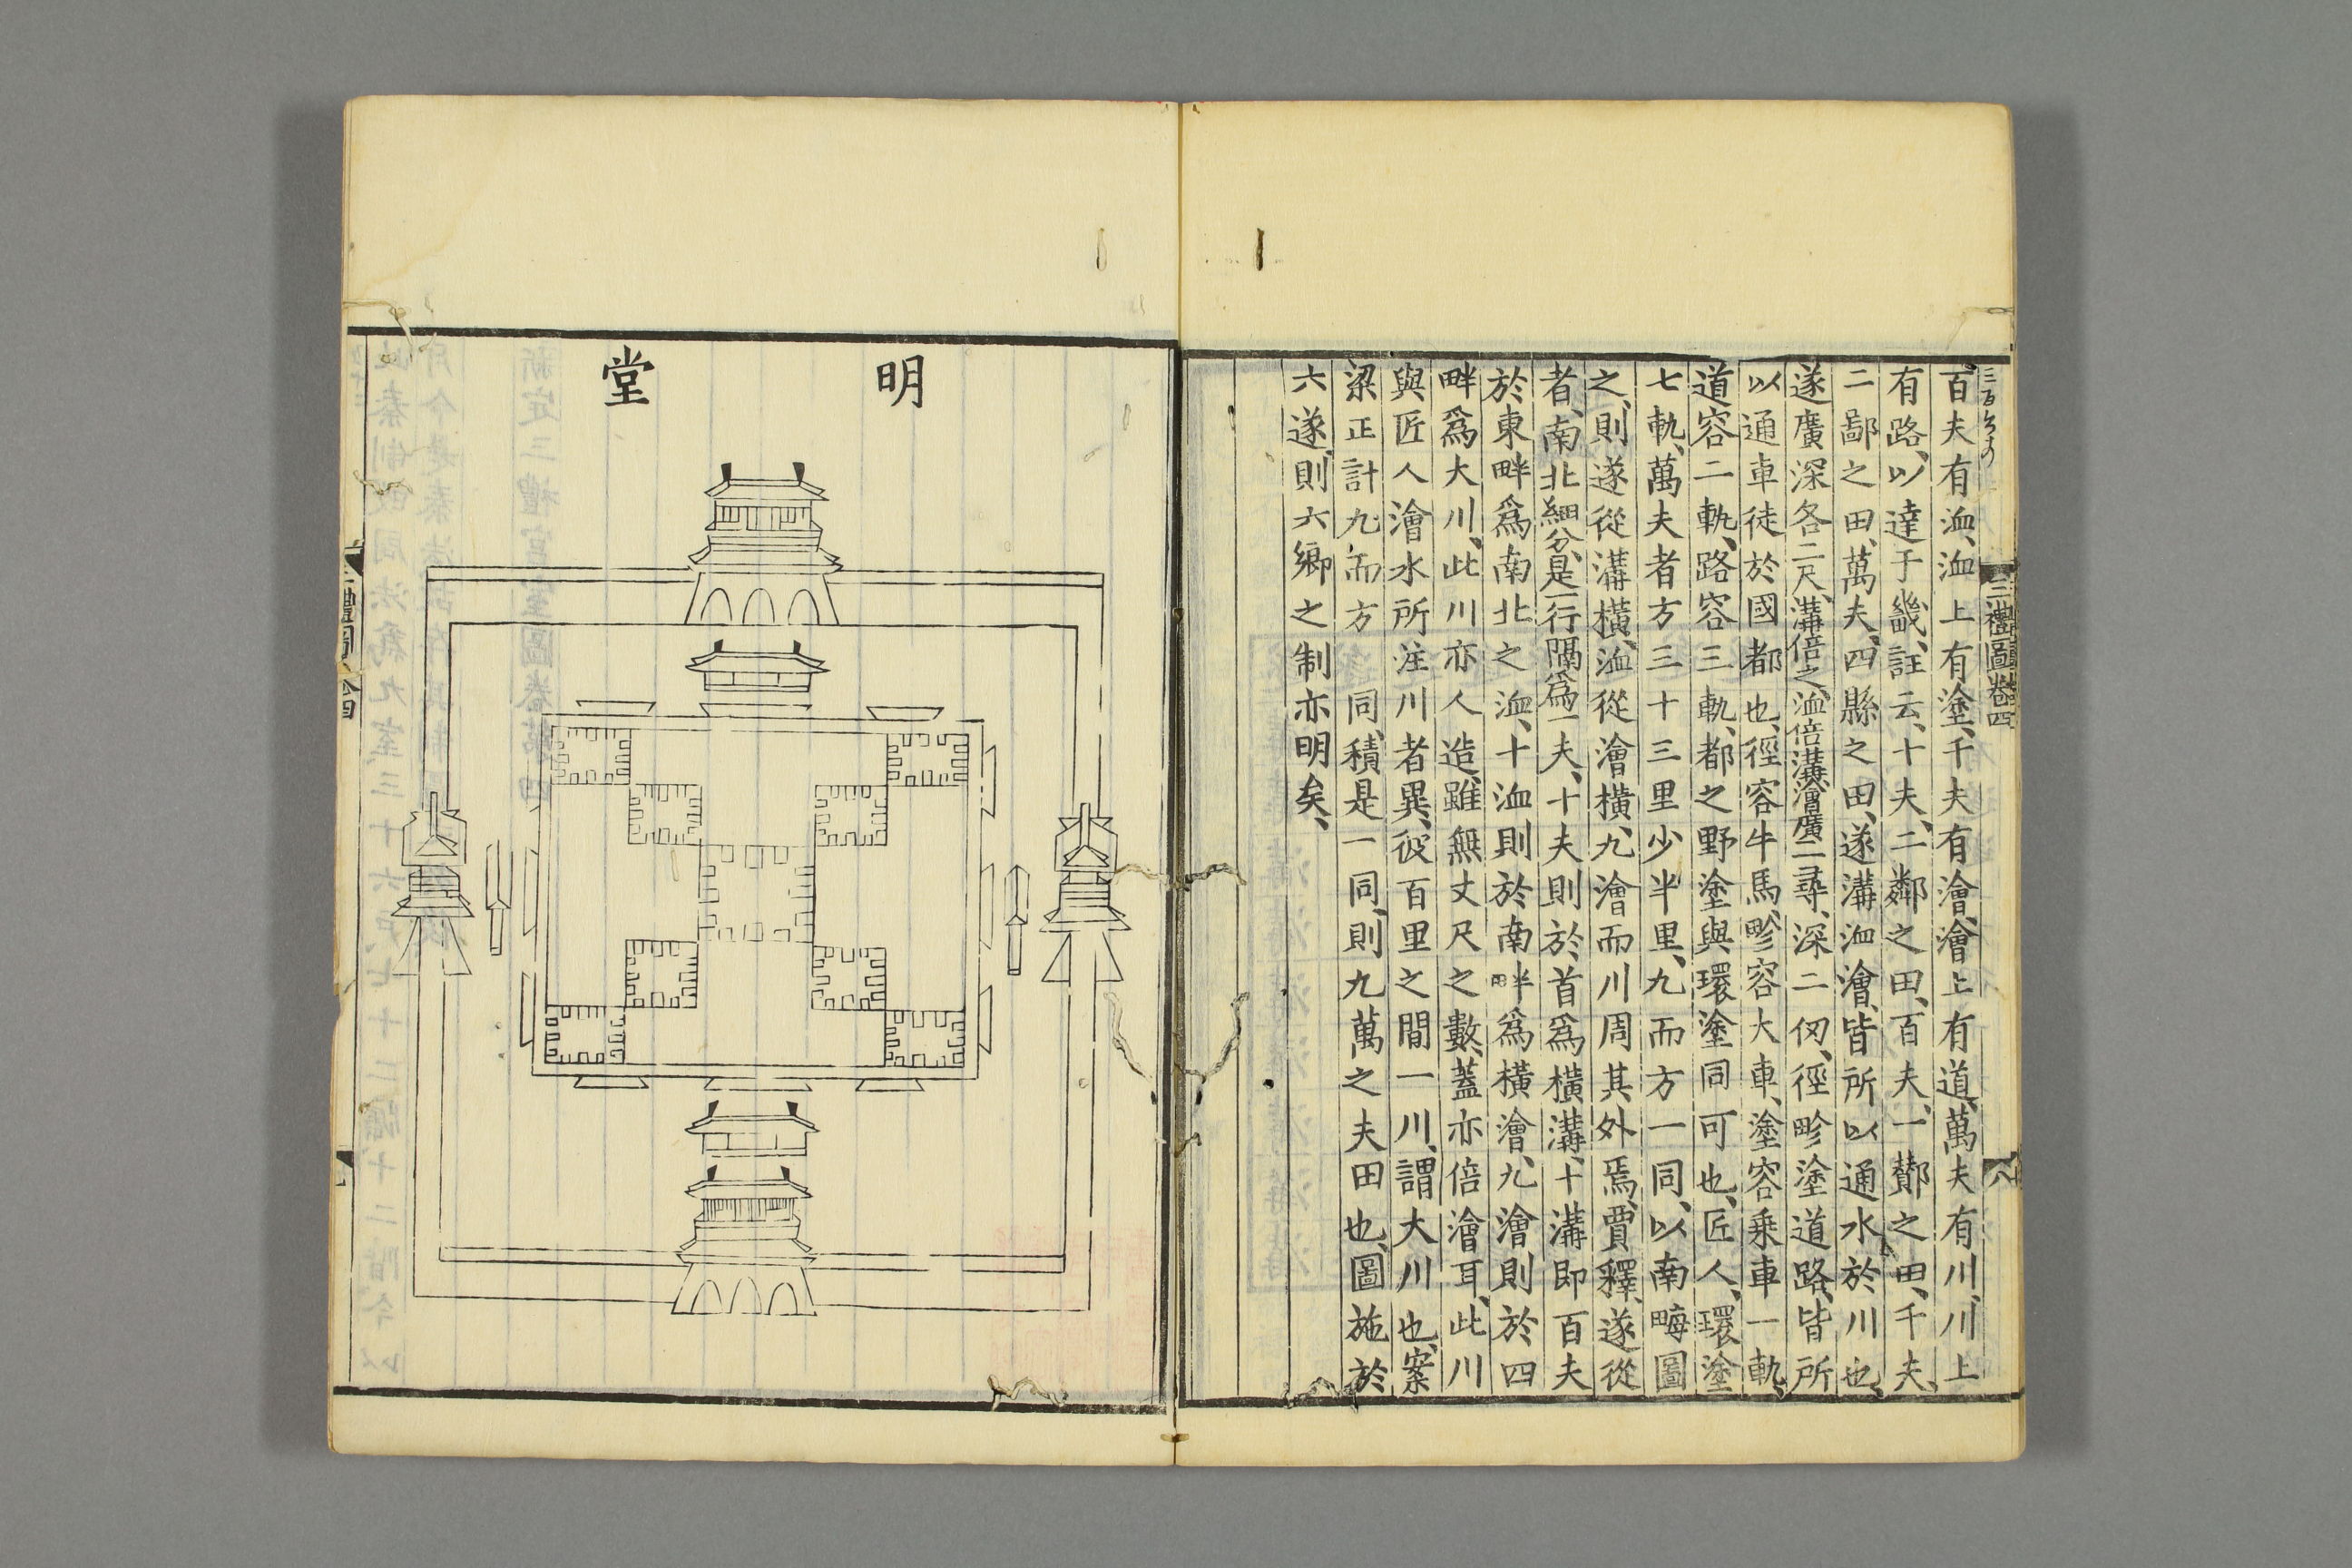 三禮圖卷四
八
百夫有洫、洫上有塗、千夫有澮、澮上有道、萬夫有川、川上
有路、以達于畿、註云、十夫、二鄰之田、百夫、一酇之田、千夫、
二鄙之田、萬夫、四縣之田、遂溝洫澮、皆所以通水於川也、
遂廣深各二尺、溝倍之、洫倍溝、澮廣二尋、深二仞、徑畛塗道路、皆所
以通車徒於國都也、徑容牛馬、畛容大車、塗容乗車一軌、
道容二軌、路容三軌、都之野塗與環塗同可也、匠人、環塗
七軌、萬夫者方三十三里少半里、九而方一同、以南畮圖
之、則遂從溝橫、洫從澮橫、九澮而川周其外焉、賈釋、遂從
者、南北細分、是一行隔爲一夫、十夫則於首爲橫溝、十溝即百夫
於東畔爲南北之洫、十洫則於南畔爲橫澮、九澮則於四
畔爲大川、此川亦人造、雖無丈尺之數、蓋亦倍澮耳、此川
與匠人澮水所注川者異、彼百里之間一川、謂大川也、案
梁正計九而方一同、積是一同、則九萬之夫田也、圖施於
六遂、則六鄉之制亦明矣、
明堂